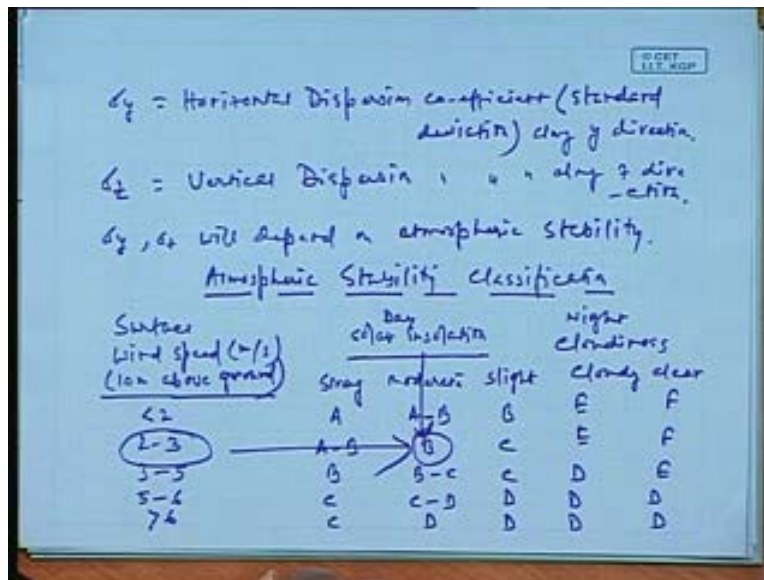 © CET
I.I.T. KGP
σy = Horizontal Dispersion co-efficient (standard
deviation) along y direction.
σz = Vertical Dispersion " " " along z dire
-ction.
σy, σz will depend on atmospheric stability.
Atmospheric Stability Classification
Surface Day Night
wind speed (m/s) solar insolation Cloudiness
(10m above ground) strong moderate slight cloudy clear
<2 A A-B B E F
2-3 A-B B C E F
3-5 B B-C C D E
5-6 C C-D D D D
>6 C D D D D